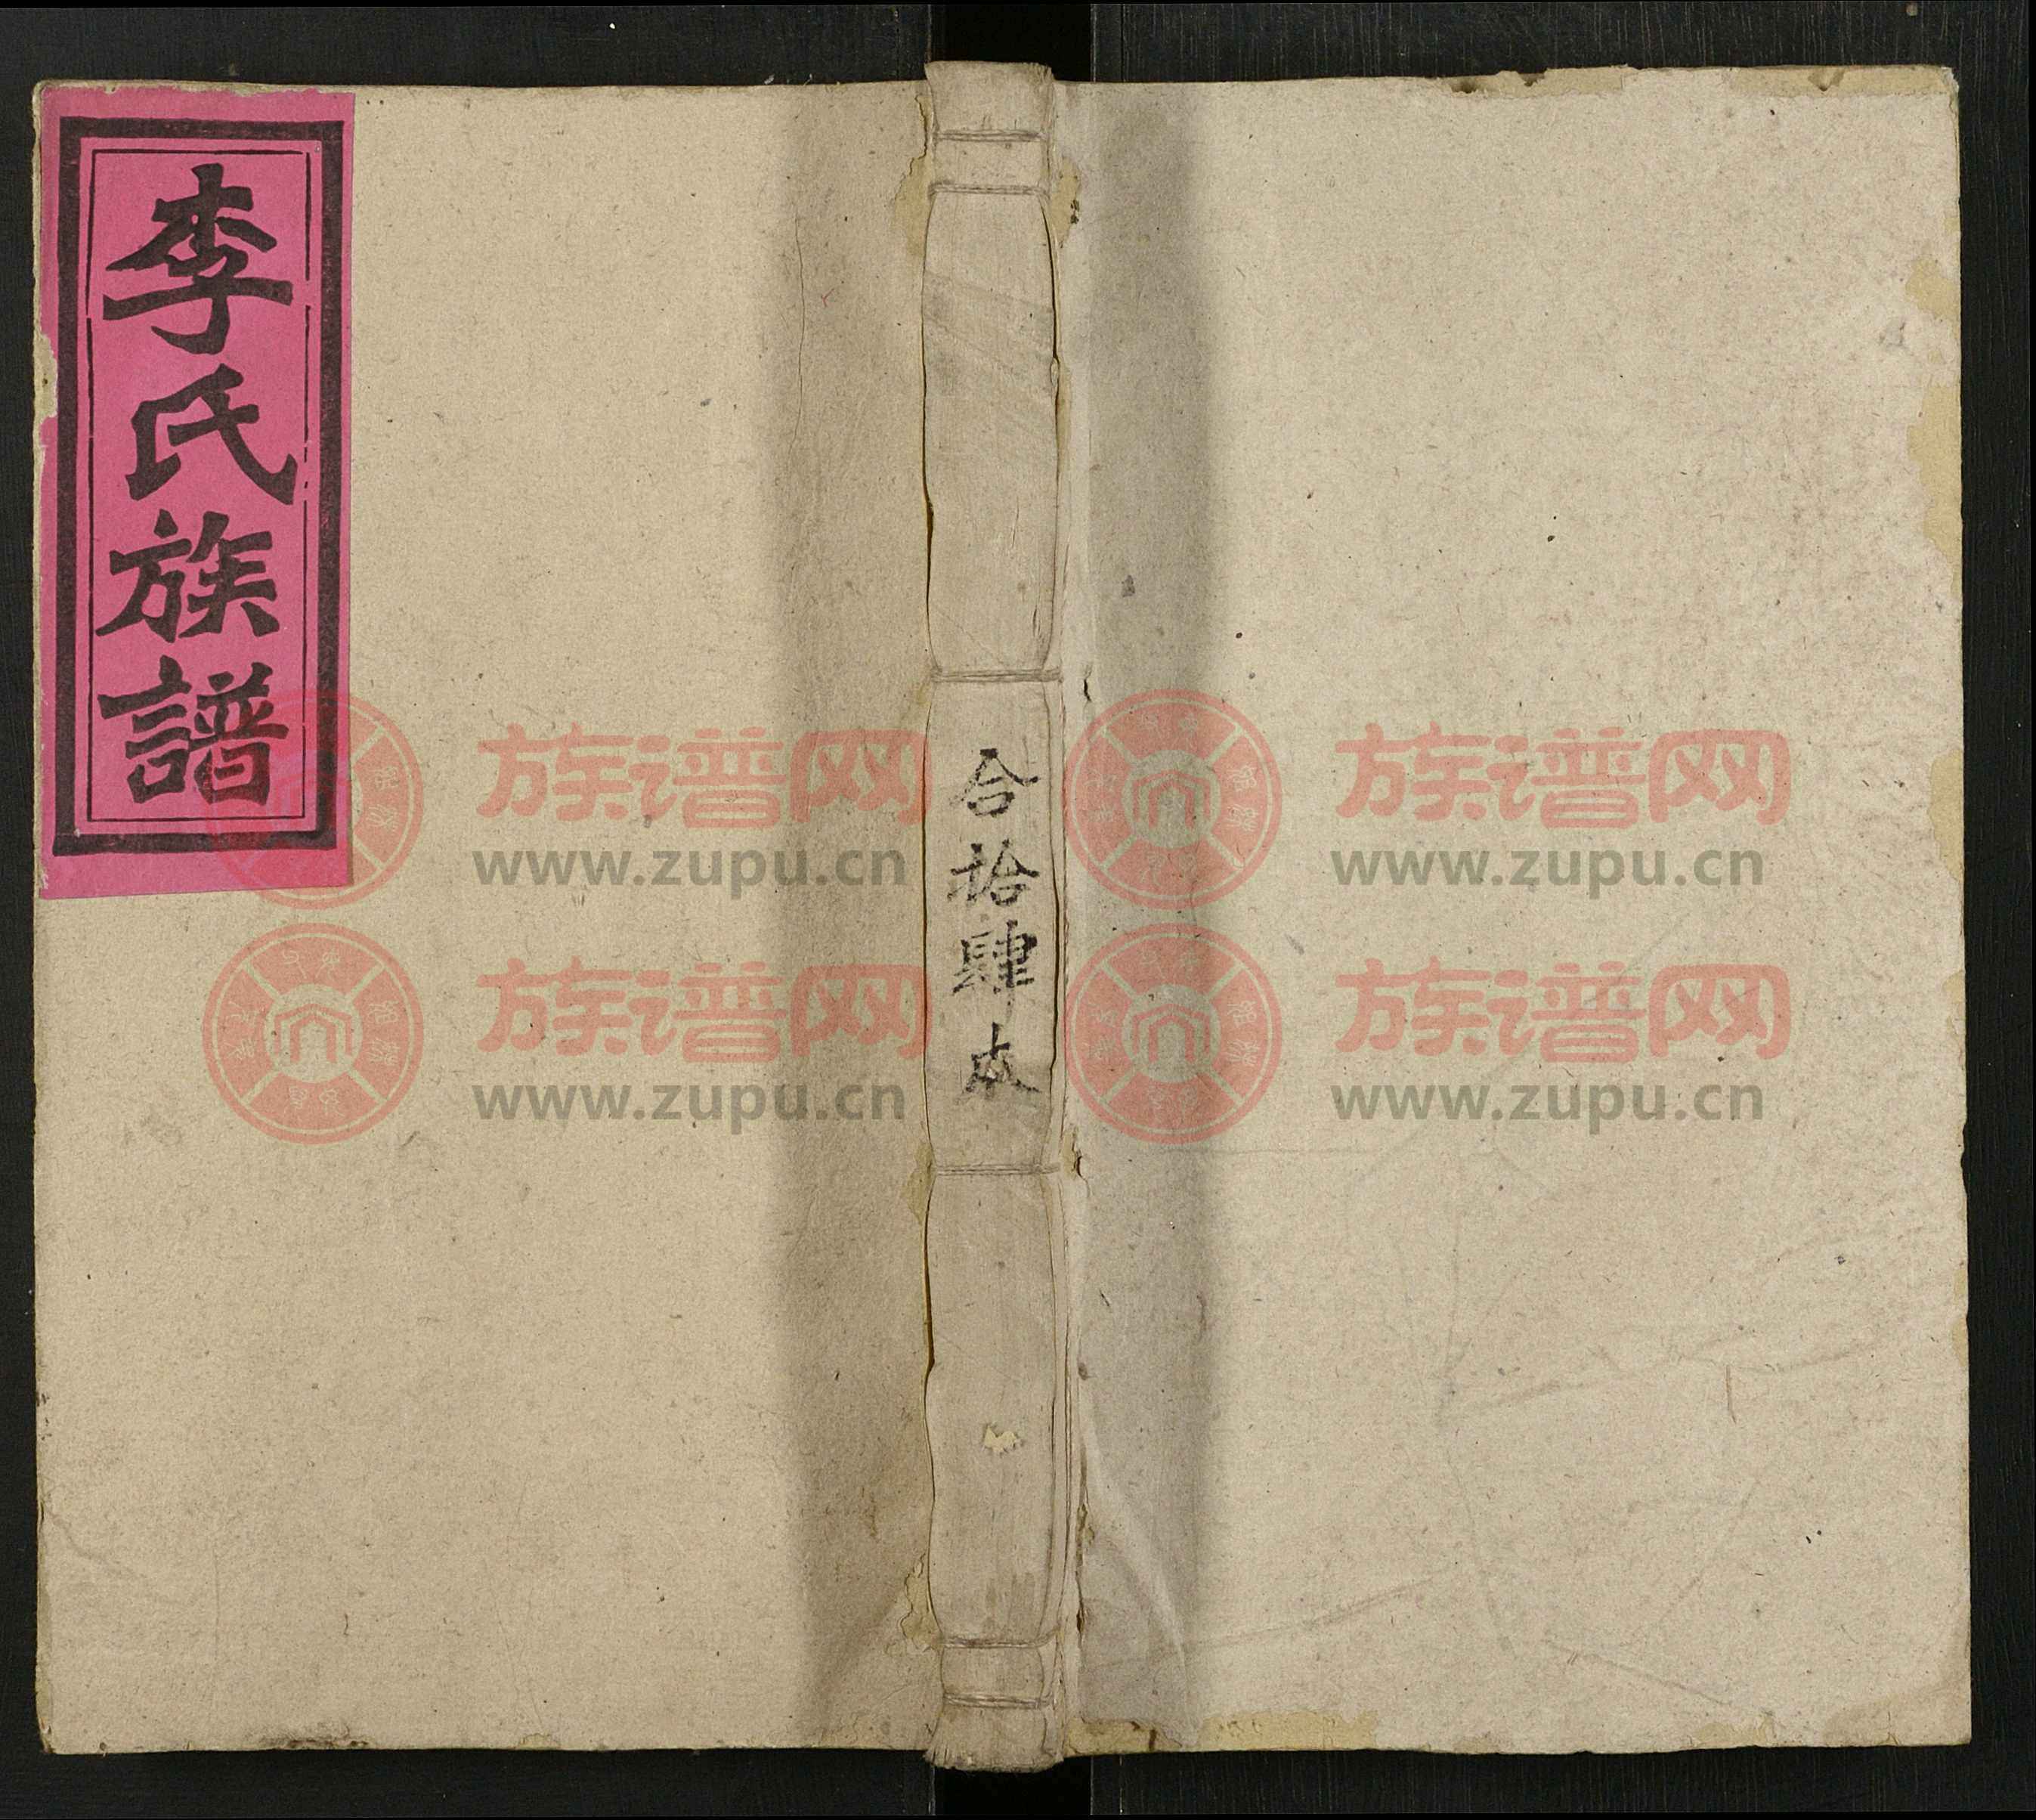 李氏族譜
合拾肆本
族谱网
www.zupu.cn
族谱网
www.zupu.cn
族谱网
www.zupu.cn
族谱网
www.zupu.cn